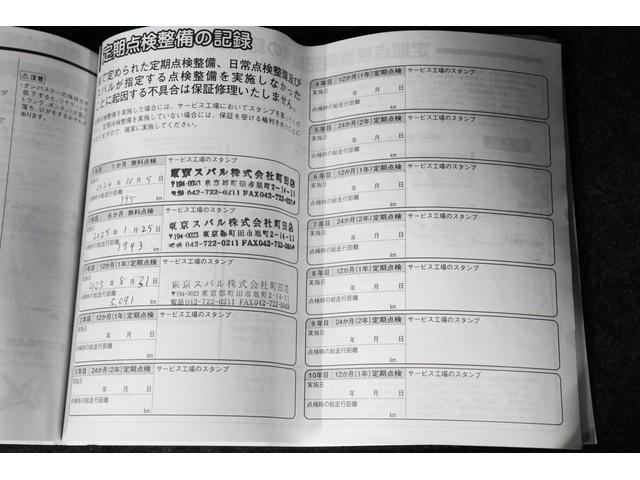 定期点検整備の記録
で定められた定期点検整備、日常点検整備及び
バルが指定する点検整備を実施しなかった
ことに起因する不具合は保証修理いたしません。
ますので、確実に実施してください。
注意
1か月 無料点検
サービス工場のスタンプ
2024年10月5日
395
km
東京スバル株式会社町田店
〒194-0023 東京都町田市旭町2-14-11
電話 042-722-0211 FAX042-723-
6か月 無料点検
サービス工場のスタンプ
2025年1月25日
km
東京スバル株式会社町田店
〒194-0023 東京都町田市旭町2-14-11
電話 042-722-0211 FAX042-723-
12か月(1年)定期点検
サービス工場のスタンプ
実施日
2025年8月31日
点検時の総走行距離
5,091
km
東京スバル株式会社町田店
〒194-0023 東京都町田市旭町2-14-11
電話042-722-0211 FAX042-722-
2年目 12か月(1年)定期点検
サービス工場のスタンプ
実施日
年 月 日
点検時の総走行距離
km
3年目 24か月(2年)定期点検
サービス工場のスタンプ
実施日
年 月 日
点検時の総走行距離
km
4年目 12か月(1年)定期点検
サービス工場のスタンプ
実施日
年 月 日
点検時の総走行距離
km
5年目 24か月(2年)定期点検
サービス工場のスタンプ
実施日
年 月 日
点検時の総走行距離
km
6年目 12か月(1年)定期点検
サービス工場のスタンプ
実施日
年 月 日
点検時の総走行距離
km
7年目 24か月(2年)定期点検
サービス工場のスタンプ
実施日
年 月 日
点検時の総走行距離
km
8年目 12か月(1年)定期点検
サービス工場のスタンプ
実施日
年 月 日
点検時の総走行距離
km
9年目 24か月(2年)定期点検
サービス工場のスタンプ
実施日
年 月 日
点検時の総走行距離
km
10年目 12か月(1年)定期点検
サービス工場のスタンプ
実施日
年 月 日
点検時の総走行距離
km